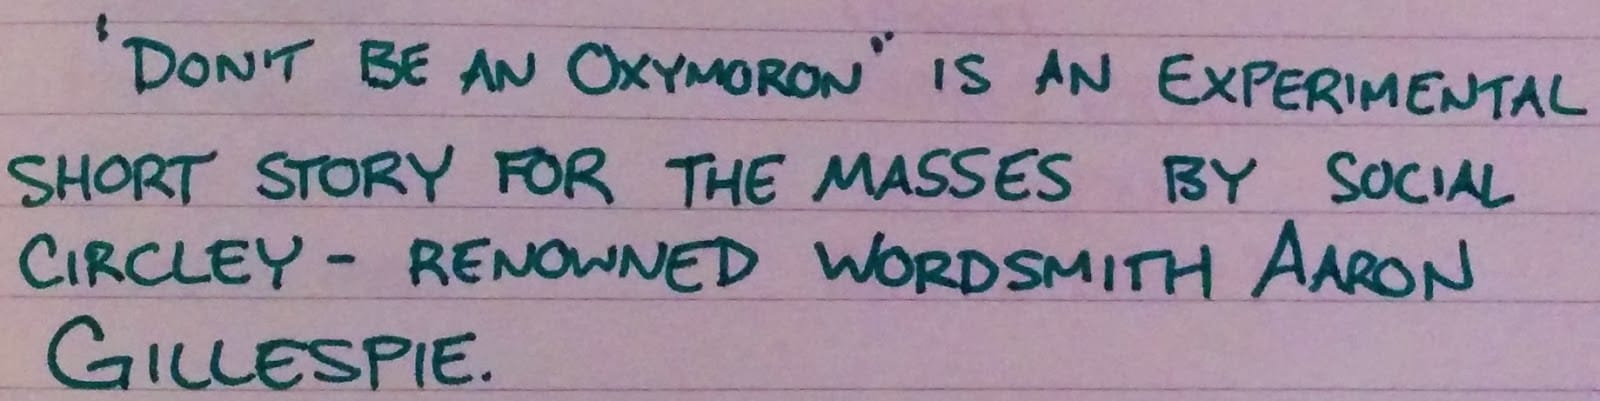 'DON'T BE AN OXYMORON" IS AN EXPERIMENTAL
SHORT STORY FOR THE MASSES BY SOCIAL
CIRCLEY - RENOWNED WORDSMITH AARON
GILLESPIE.